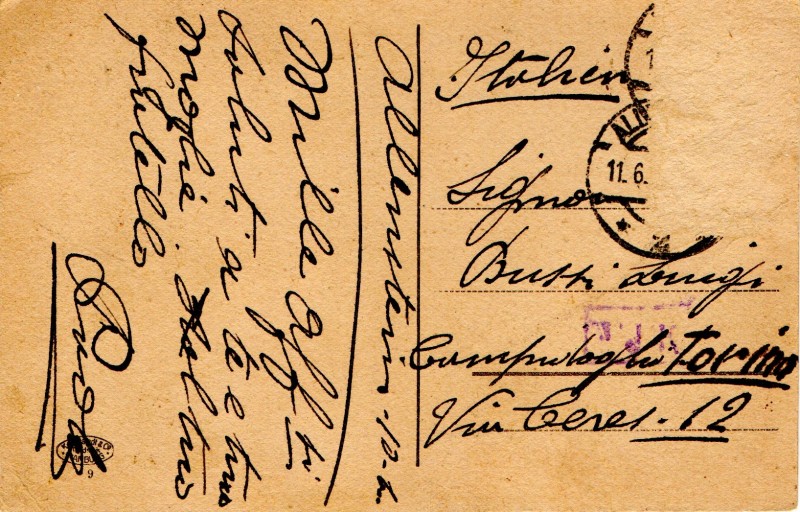 Allenstein 10-6
Mille aff.ti
saluti a te e tua
moglie. Il tuo
fratello
Italien
Signor
Bussi Luigi
Campidoglio Torino
Via Ceres. 12
11.6.
9